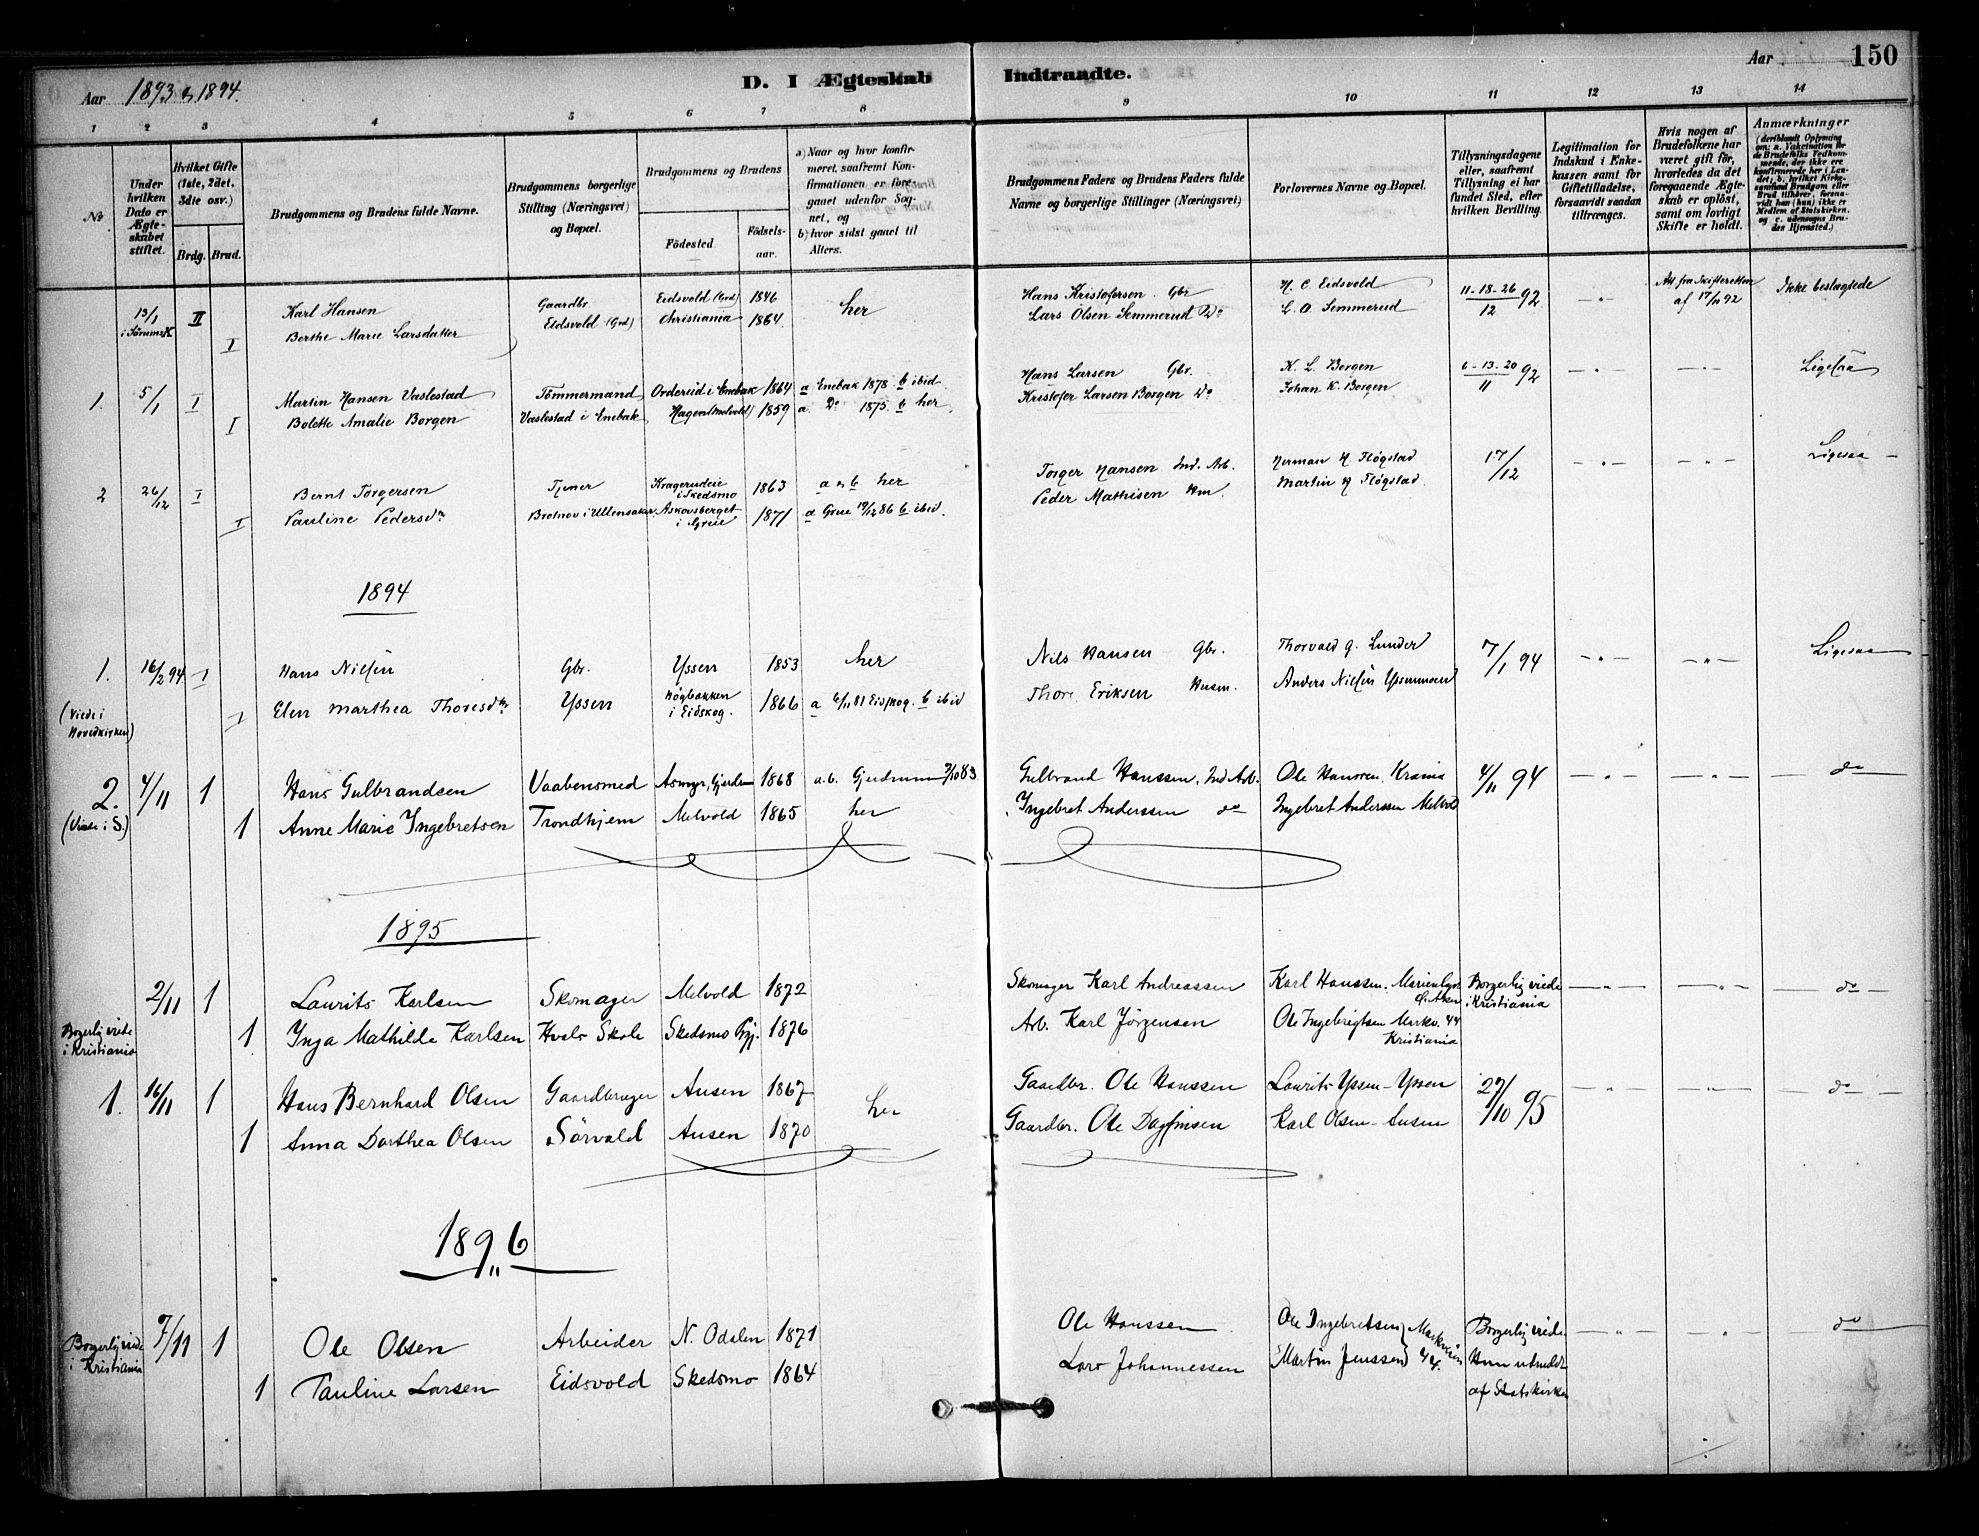 Aar 1893 & 1894.
D. I Ægteskab Indtraadte.
Aar 150
1 2 3 4 5 6 7 8 9 10 11 12 13 14
No
Under hvilken Dato er Ægteskabet stiftet.
Hvilket Gifte (1ste, 2det, 3die osv.)
Brdg. Brud.
Brudgommens og Brudens fulde Navne.
Brudgommens borgerlige Stilling (Næringsvei) og Bopæl.
Brudgommens og Brudens
Födested.
Födselsaar.
a) Naar og hvor konfirmeret, saafremt Konfirmationen er foregaaet udenfor Sognet, og
b) hvor sidst gaaet til Alters.
Brudgommens Faders og Brudens Faders fulde Navne og borgerlige Stillinger (Næringsvei)
Forlovernes Navne og Bopæl.
Tillysningsdagene eller, saafremt Tillysning ei har fundet Sted, efter hvilken Bevilling.
Legitimation for Indskud i Enkekassen samt for Giftetilladelse, forsaavidt saadan tiltrænges.
Hvis nogen af Brudefolkene har været gift för, hvorledes da det foregaaende Ægteskab er oplöst, samt om lovligt Skifte er holdt.
Anmærkninger (deriblandt Oplysning om: a. Vakcination for de Brudefolks Vedkommende, der ikke ere konfirmerede her i Landet, b. hvilket Kirkesamfund Brudgom eller Brud tilhörer, forsaavidt han (hun) ikke er Medlem af Statskirken, og c. udensogns Brudes Hjemsted.)
13/1 II Karl Hansen Gaardbr. Eidsvold (Grd) 1846 her Hans Kristofersen Gbr H. C. Eidsvold 11-18-26/12 92 - " - Att fra Skifteretten af 17/11 92 Ikke beslægtede
I Berthe Marie Larsdatter Eidsvold (Grd) Christiania 1864 Lars Olsen Semmerud Do L. O. Semmerud
1. 5/1 I Martin Hansen Vaslestad Tömmermand Orderud i Enebak 1864 a Enebak 1878 b ibid Hans Larsen Gbr. K. L. Borgen 6-13-20/11 92 - " - - " - Ligesaa
I Bolette Amalie Borgen Vaslestad i Enebak Hagen (Melvold) 1859 a Do 1873 b her Kristofer Larsen Borgen Do Johan K. Borgen
2 26/12 I Bernt Torgersen Tjener Kragerudeie i Skedsmo 1863 a & b her Torger Hansen Ind. Arb. Herman H Flögstad 17/12 - " - - " - Ligesaa
I Pauline Pedersdr Brotnov i Ullensaker Askovsberget i Grue 1871 a Grue 19/12 86 b ibid. Peder Mathisen Hm. Martin H Flögstad
1894
1. 16/2 94 I Hans Nilsen Gbr. Yssen 1853 her Nils Hansen Gbr. Thorvald G. Lunder 7/1 94 - " - - " - Ligesaa
(Viede i Hovedkirken) I Elen Marthea Thoresdtr Yssen Högbakken i Eidskog. 1866 a 6/11 81 Eidskog. b ibid Thore Eriksen Husm. Anders Nilsen Yssenmoen
2. 4/11 1 Hans Gulbrandsen Vaabensmed Asmyr, Gjerdrum 1868 a.b. Gjerdrum 7/10 83 Gulbrand Hanssen, Ind Arb. Ole Hanssen, Krania 4/11 94 - " - - " - do
(Viede i S.) 1 Anne Marie Ingebretsen Trondhjem Melvold 1865 her Ingebret Anderssen do Ingebret Anderssen Melvold
1895
2/11 1 Laurits Karlsen Skomager Melvold 1872 Skomager Karl Andreassen Karl Hanssen, Marienlyst Borgerlig viede i Kristiania - " - - " - do
Borgerlig viede i Kristiania 1. Inga Mathilde Karlsen Hvals Skole Skedsmo Prgj. 1876 Arb. Karl Jörgensen Ole Ingebrigtsen Markv. 44 Kristiania
1. 16/11 1 Hans Bernhard Olsen Gaardbruger Ausen 1867 her Gaardbr. Ole Hanssen Laurits Yssen - Yssen 27/10 95 - " - - " - do
1 Anna Dorthea Olsen Sörvald Ausen 1870 Gaardbr. Ole Dagfinsen Karl Olsen - Ausen
1896
Borgerlig viede i Kristiania 7/11 1 Ole Olsen Arbeider N. Odalen 1871 Ole Hanssen Ole Ingebretsen Markveien 44. Borgerlig viede - " - - " - do
1 Pauline Larsen Eidsvold Skedsmo 1864 Lars Johannessen Martin Jenssen Hun utmeldt af Statskirken